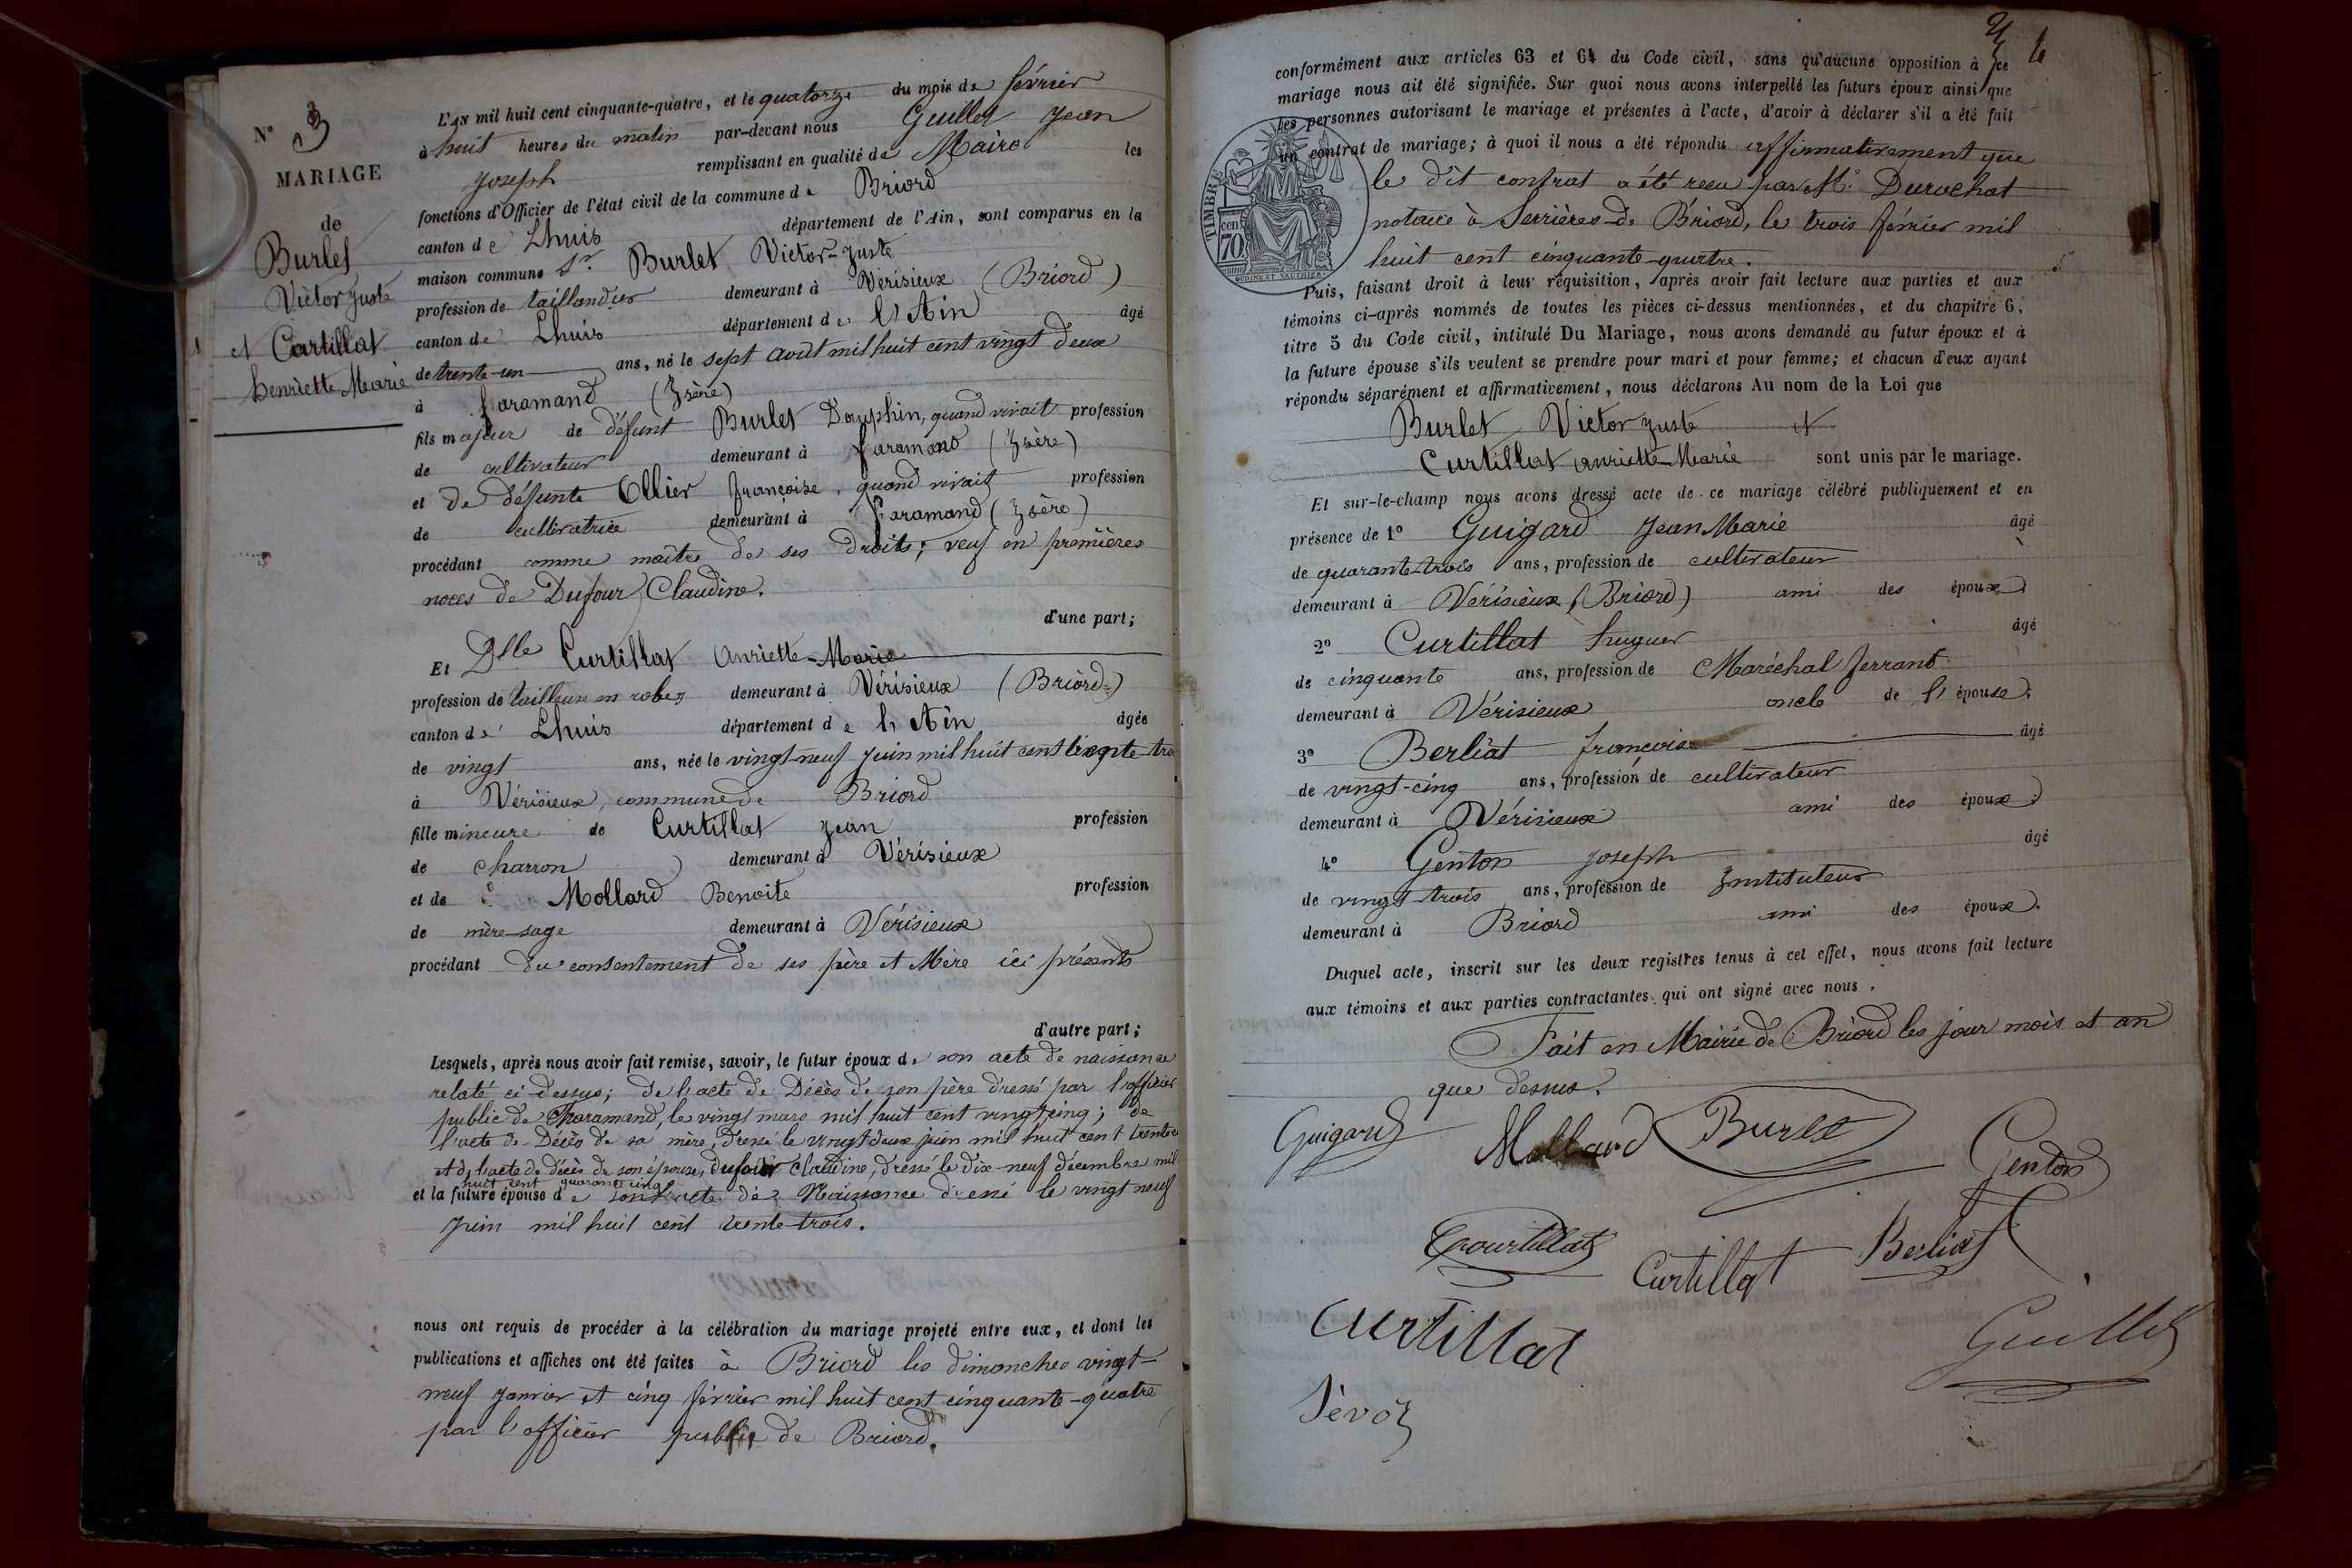 N° 3
MARIAGE
de
Burlet
Victor Juste
et Curtillat
henriette Marie
L'AN mil huit cent cinquante-quatre, et le quatorze du mois de février
à huit heures du matin par-devant nous Guillet Jean
Joseph remplissant en qualité de Maire les
fonctions d'Officier de l'état civil de la commune de Briord
canton de Lhuis département de l'Ain, sont comparus en la
maison commune Sr. Burlet Victor-Juste
profession de taillandier demeurant à Vérisieux (Briord)
canton de Lhuis département de l'Ain âgé
de trente-un ans, né le sept août mil huit cent vingt deux
à faramand (Isère)
fils majeur de défunt Burlet Dauphin, quand vivait profession
de cultivateur demeurant à faramand (Isère)
et de défunte Ollier françoise, quand vivait profession
de cultivatrice demeurant à Faramand (Isère)
procédant comme maître de ses droits; veuf en premières
noces de Dufour Claudine.
d'une part;
Et Dlle Curtillat Anriette-Marie
profession de tailleuse en robes demeurant à Vérisieux (Briord)
canton de Lhuis département de l'Ain âgée
de vingt ans, née le vingt-neuf Juin mil huit cent trente-tro
à Vérisieux, commune de Briord
fille mineure de Curtillat Jean profession
de charron demeurant à Vérisieux
et de Mollard Benoite profession
de mère-sage demeurant à Vérisieux
procédant du consentement de ses père et Mère ici présents
d'autre part;
Lesquels, après nous avoir fait remise, savoir, le futur époux de son acte de naissance
relaté ci-dessus; de l'acte de Décès de son père dressé par l'officier
public de Tharamand, le vingt mars mil huit cent vingt-cinq; de
l'acte de Décès de sa mère, dressé le vingt deux juin mil huit cent trente
et de l'acte de décès de son épouse, Dufour Claudine, dressé le dix-neuf décembre mil
huit cent quarante cinq
et la future épouse de son acte de Naissance dressé le vingt neuf
juin mil huit cent trente-trois.
nous ont requis de procéder à la célébration du mariage projeté entre eux, et dont les
publications et affiches ont été faites à Briord les dimanches vingt-
neuf Janvier et cinq février mil huit cent cinquante-quatre
par l'officier public de Briord.
conformément aux articles 63 et 64 du Code civil, sans qu'aucune opposition à ce
mariage nous ait été signifiée. Sur quoi nous avons interpellé les futurs époux ainsi que
les personnes autorisant le mariage et présentes à l'acte, d'avoir à déclarer s'il a été fait
un contrat de mariage; à quoi il nous a été répondu affirmativement que
le dit contrat a été reçu par Me. Durochat
notaire à Serrières-de-Briord, le trois février mil
huit cent cinquante-quatre.
TIMBRE
cen.
70
Puis, faisant droit à leur réquisition, après avoir fait lecture aux parties et aux
témoins ci-après nommés de toutes les pièces ci-dessus mentionnées, et du chapitre 6,
titre 5 du Code civil, intitulé Du Mariage, nous avons demandé au futur époux et à
la future épouse s'ils veulent se prendre pour mari et pour femme; et chacun d'eux ayant
répondu séparément et affirmativement, nous déclarons Au nom de la Loi que
Burlet Victor Juste et
Curtillat Anriette-Marie sont unis par le mariage.
Et sur-le-champ nous avons dressé acte de ce mariage célébré publiquement et en
présence de 1° Guigard Jean Marie âgé
de quarante-trois ans, profession de cultivateur
demeurant à Vérisieux (Briord) ami des époux.
2° Curtillat hugues âgé
de cinquante ans, profession de Maréchal ferrant
demeurant à Vérisieux oncle de l'épouse.
3° Berliat françois âgé
de vingt-cinq ans, profession de cultivateur
demeurant à Vérisieux ami des époux.
4° Genton Joseph âgé
de vingt-trois ans, profession de Instituteur
demeurant à Briord ami des époux.
Duquel acte, inscrit sur les deux registres tenus à cet effet, nous avons fait lecture
aux témoins et aux parties contractantes qui ont signé avec nous.
Fait en Mairie de Briord les jour mois et an
que dessus.
Guigard Mollard Burlet Genton
Courtillat Curtillat Berliat
Curtillat Guillet